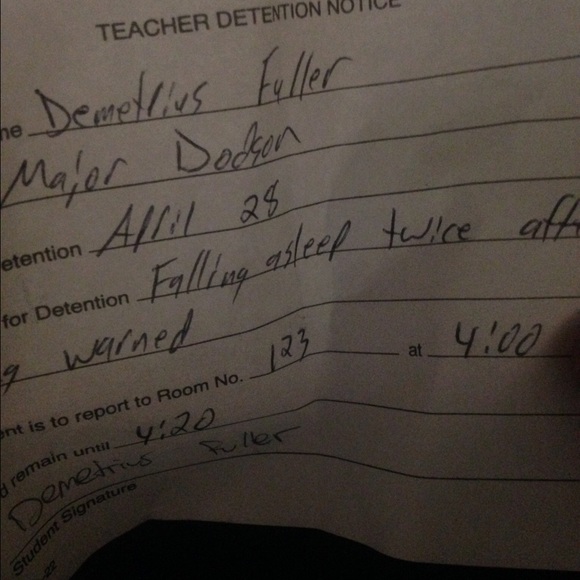 TEACHER DETENTION NOTICE
me Demetrius Fuller
Major Dodson
etention April 28
for Detention Falling asleep twice aft
g warned
ent is to report to Room No. 123 at 4:00
d remain until 4:20
Demetrius Fuller
Student Signature